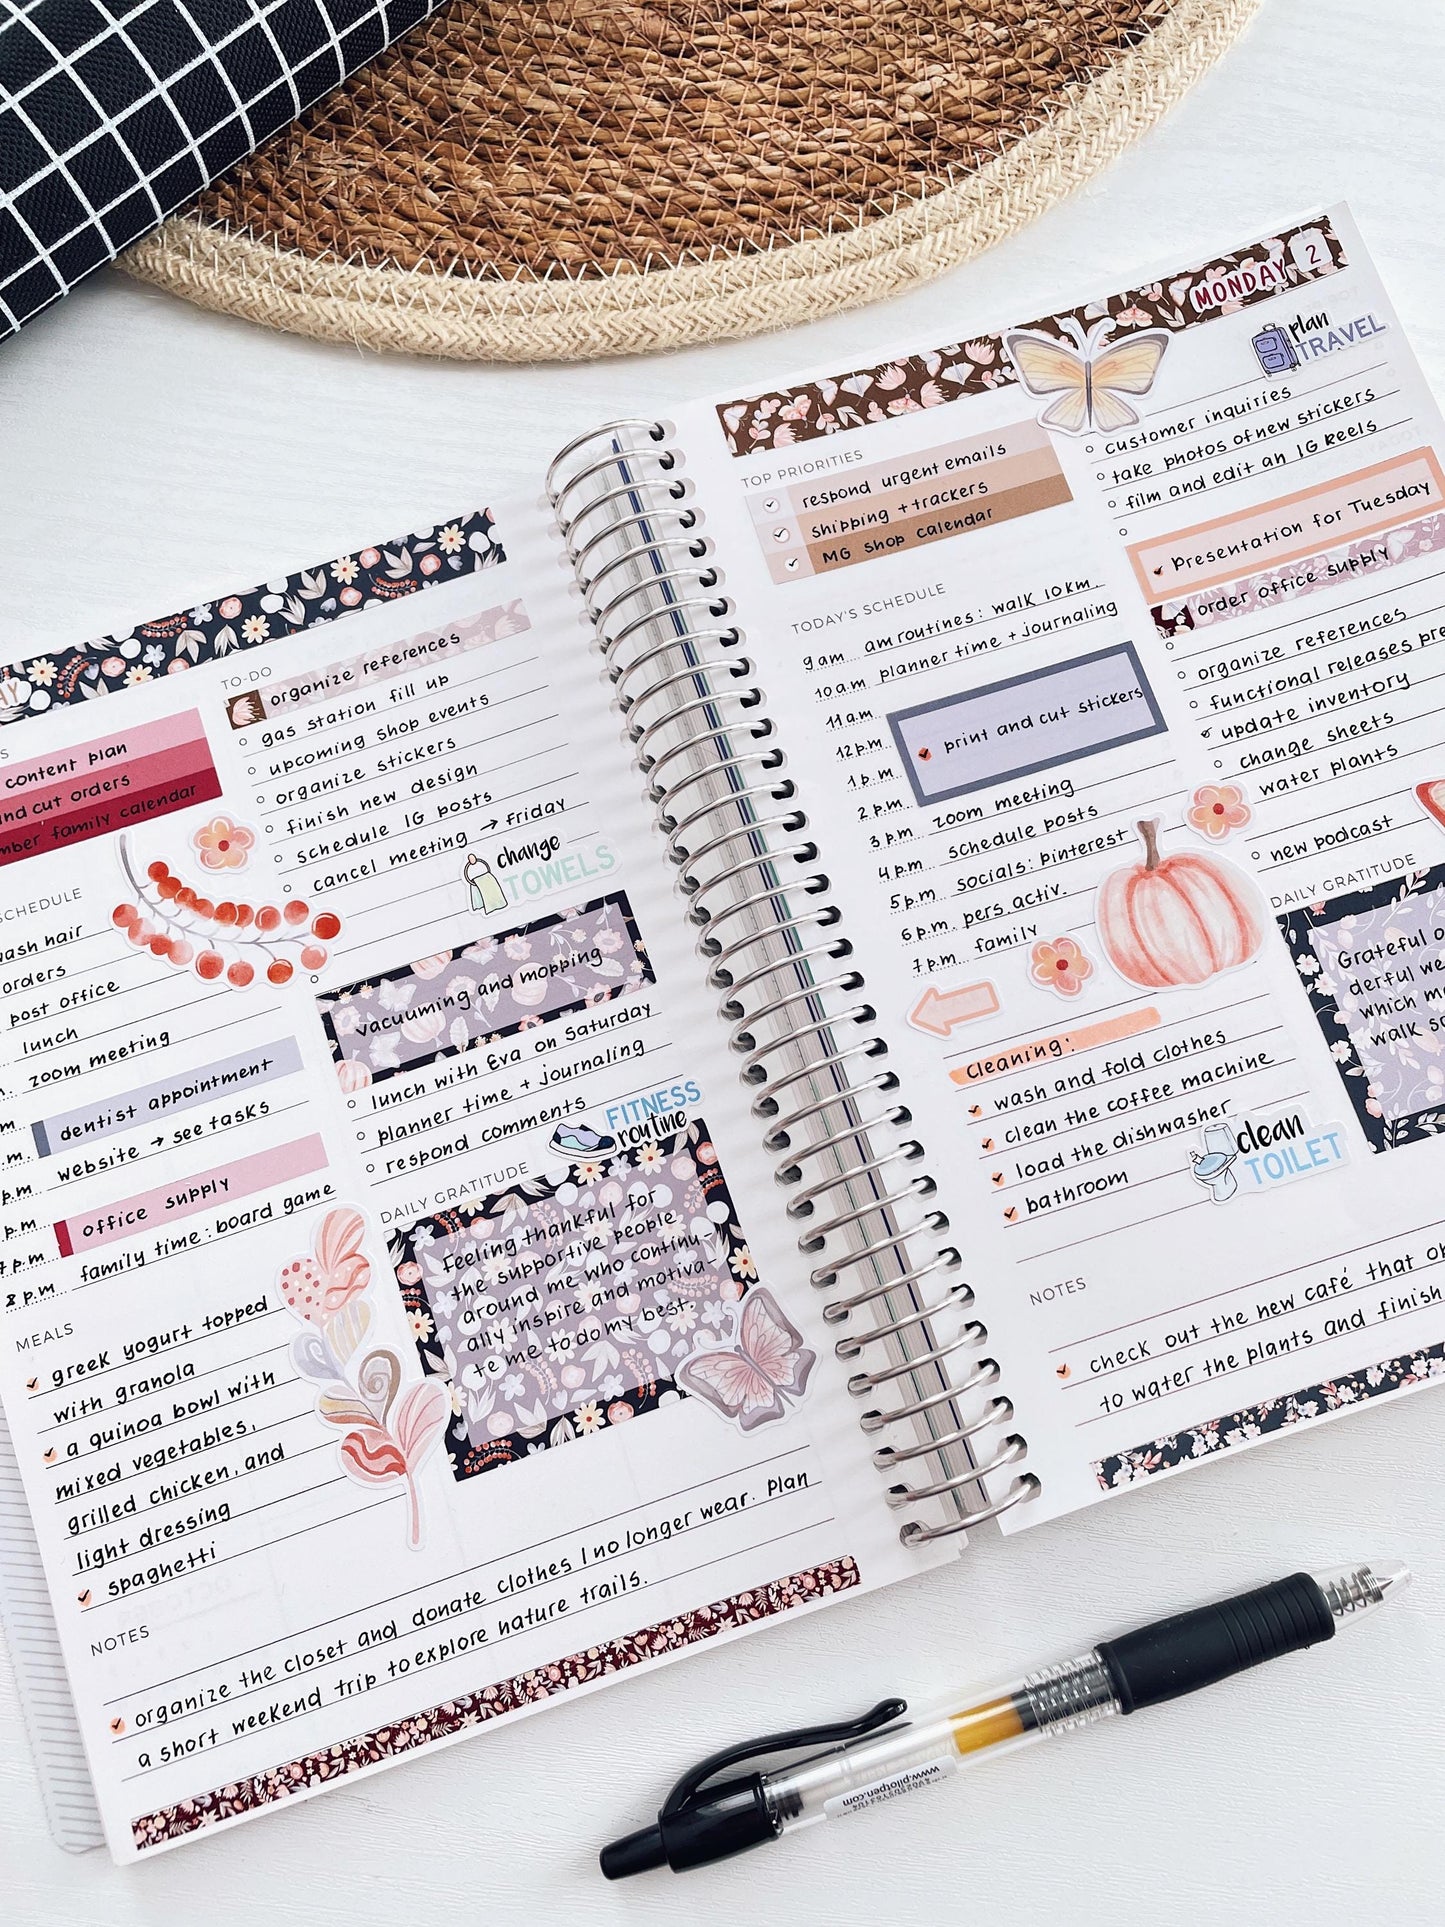 content plan
cut orders
family calendar
SCHEDULE
hair
orders
post office
lunch
zoom meeting
dentist appointment
website → see tasks
office supply
family time: board game
8 p.m.
MEALS
greek yogurt topped
with granola
a quinoa bowl with
mixed vegetables,
grilled chicken, and
light dressing
spaghetti
TO-DO
organize references
gas station fill up
upcoming shop events
organize stickers
finish new design
schedule IG posts
cancel meeting → friday
change
TOWELS
vacuuming and mopping
lunch with Eva on Saturday
planner time + journaling
respond comments
FITNESS
routine
DAILY GRATITUDE
Feeling thankful for
the supportive people
around me who continu-
ally inspire and motiva-
te me to do my best.
NOTES
organize the closet and donate clothes I no longer wear. Plan
a short weekend trip to explore nature trails.
MONDAY 2
TOP PRIORITIES
respond urgent emails
shipping + trackers
MG shop calendar
TODAY'S SCHEDULE
9 am am routines: walk 10km.
10 a.m planner time + journaling
11 a.m
12 p.m print and cut stickers
1 p.m
2 p.m
3 p.m zoom meeting
4 p.m schedule posts
5 p.m socials: pinterest
6 p.m. pers. activ.
7 p.m family
cleaning:
wash and fold clothes
clean the coffee machine
load the dishwasher
bathroom
clean
TOILET
plan
TRAVEL
customer inquiries
take photos of new stickers
film and edit an IG Reels
Presentation for Tuesday
order office supply
organize references
functional releases
update inventory
change sheets
water plants
new podcast
DAILY GRATITUDE
Grateful
derful
which
walk
NOTES
check out the new café that
to water the plants and finish
www.pilotpen.com